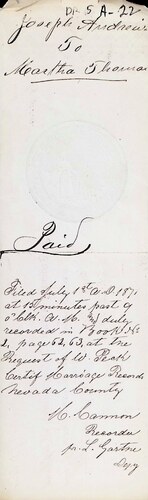 D. 5 A-22
Joseph Andrew
To
Martha Thomas
Paid
Filed July 1st A.D. 187
at 15 minutes past 9
o'clk. A.M. & duly
recorded in Book No
2, page 62, 63, at the
Request of W. Peck
Cert of Marriage Records
Nevada County
H. Cannon
Recorder
pr. L. Garthe
Dpy